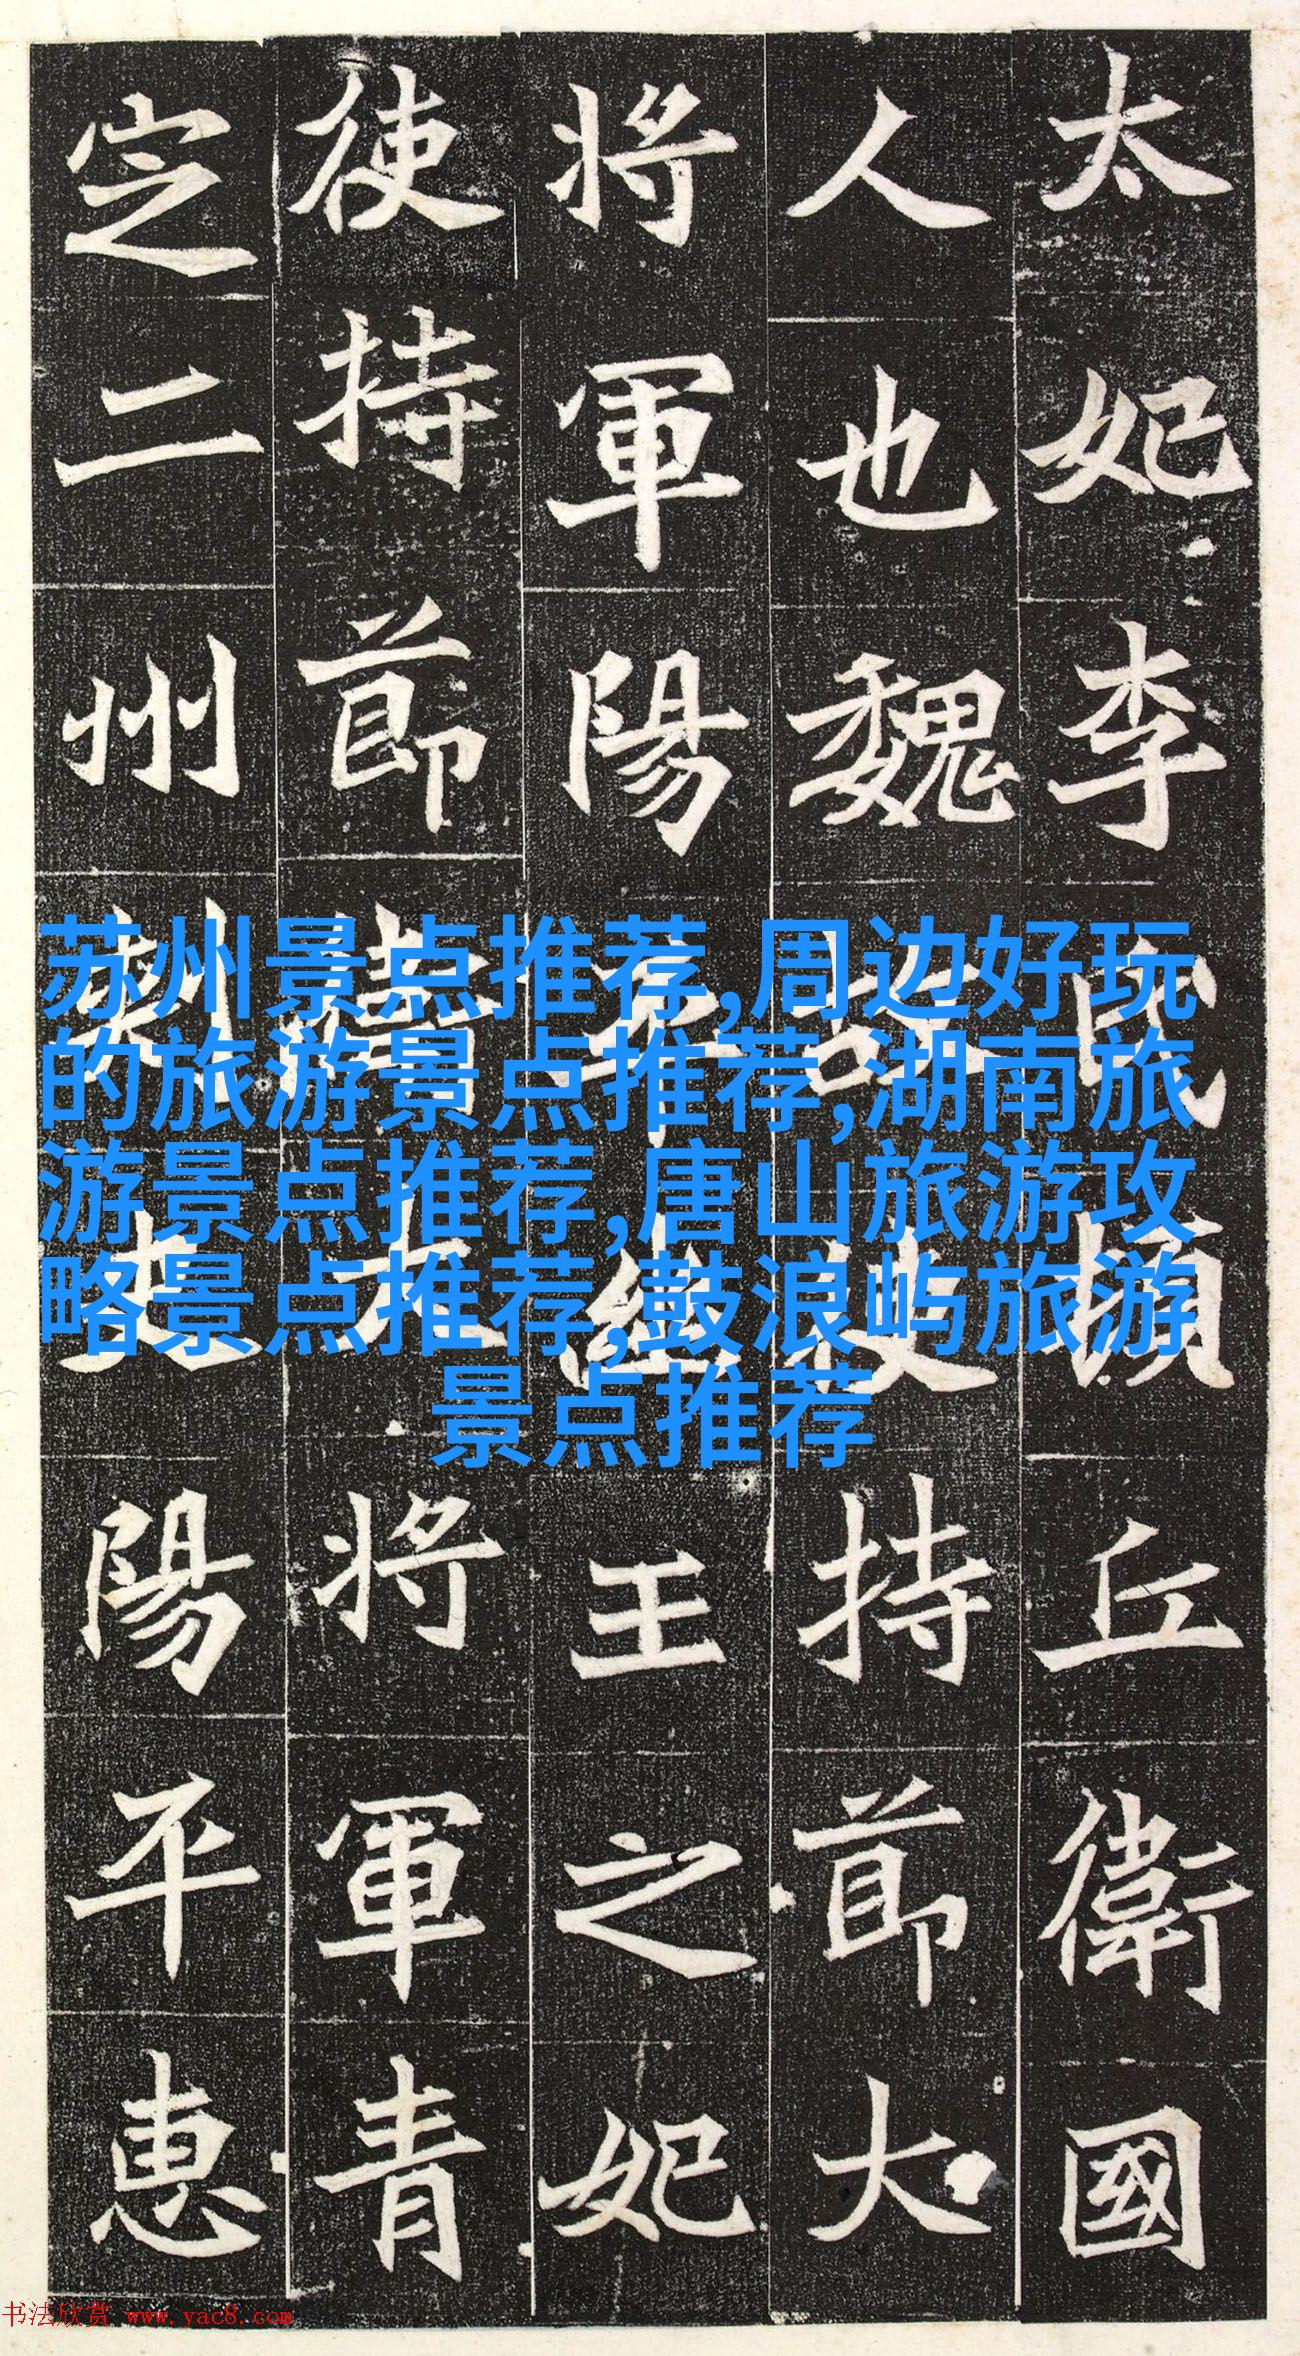 太妃李氏頓丘衛國
人也魏故使持節大
將軍陽平幽王之妃
使持節衛大將軍青
定二州刺史陽平惠
苏州景点推荐,周边好玩
的旅游景点推荐,湖南旅
游景点推荐,唐山旅游攻
略景点推荐,鼓浪屿旅游
景点推荐
书法欣赏 www.yac8.com